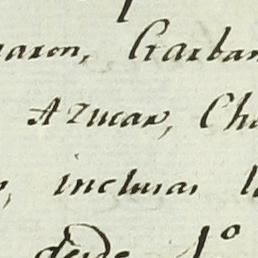 naron, Garban
Azucar, Cho
inclusas l
desde 1º